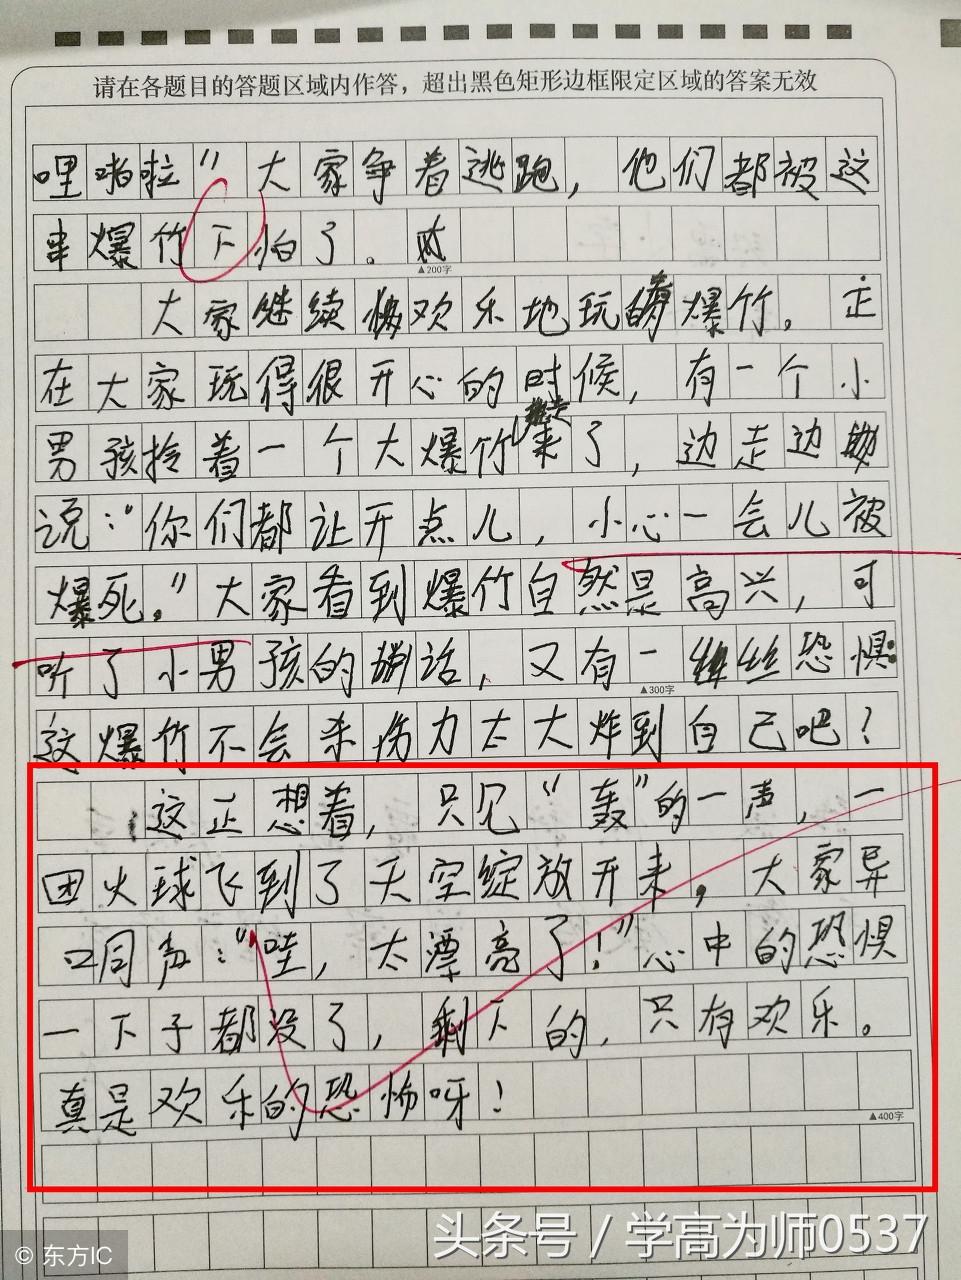 请在各题目的答题区域内作答，超出黑色矩形边框限定区域的答案无效
哩啪啦”大家争着逃跑，他们都被这
串爆竹下怕了。
▲200字
大家继续欢乐地玩着爆竹。正
在大家玩得很开心的时候，有一个小
男孩拎着一个大爆竹走来了，边走边
说：“你们都让开点儿，小心一会儿被
爆死。”大家看到爆竹自然是高兴，可
听了小男孩的话，又有一丝恐惧：
▲300字
这爆竹不会杀伤力太大炸到自己吧？
这正想着，只见“轰”的一声，一
团火球飞到了天空绽放开来，大家异
口同声：“哇，太漂亮了！”心中的恐惧
一下子都没了，剩下的，只有欢乐。
真是欢乐的恐怖呀！
▲400字
头条号 / 学高为师0537
© 东方IC